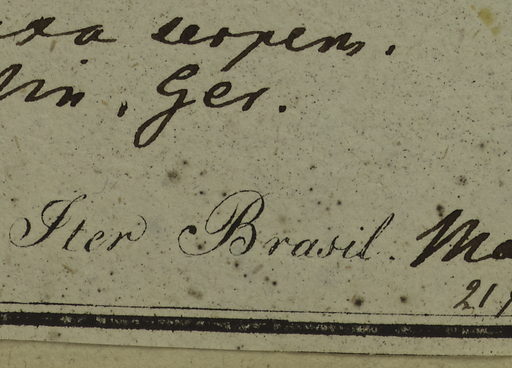 serpens.
lin. Ger.
Iter Brasil.
21